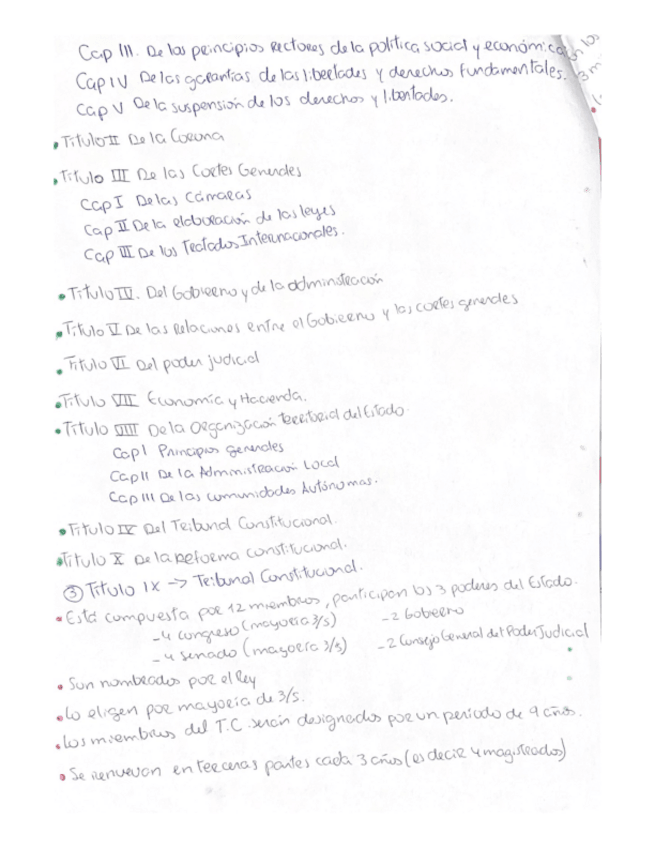 Cap III. De los principios rectores de la política social y económica
Cap IV De las garantías de las libertades y derechos fundamentales.
Cap V De la suspensión de los derechos y libertades.
• Título II De la Corona
• Título III De las Cortes Generales
Cap I De las Cámaras
Cap II De la elaboración de las leyes
Cap III De los Tratados Internacionales.
• Título IV. Del Gobierno y de la administración
• Título V De las Relaciones entre el Gobierno y las cortes generales
• Título VI Del poder judicial
• Título VII Economía y Hacienda.
• Título VIII De la Organización territorial del Estado.
Cap I Principios generales
Cap II De la Administración Local
Cap III De las comunidades Autónomas.
• Título IX Del Tribunal Constitucional.
• Título X De la Reforma constitucional.
③ Título IX -> Tribunal Constitucional.
• Está compuesta por 12 miembros, participan los 3 poderes del Estado.
- 4 congreso (mayoría 3/5) - 2 Gobierno
- 4 senado (mayoría 3/5) - 2 Consejo General del Poder Judicial
• Son nombrados por el Rey
• Lo eligen por mayoría de 3/5.
• Los miembros del T.C. serán designados por un período de 9 años.
• Se renuevan en terceras partes cada 3 años (es decir 4 magistrados)